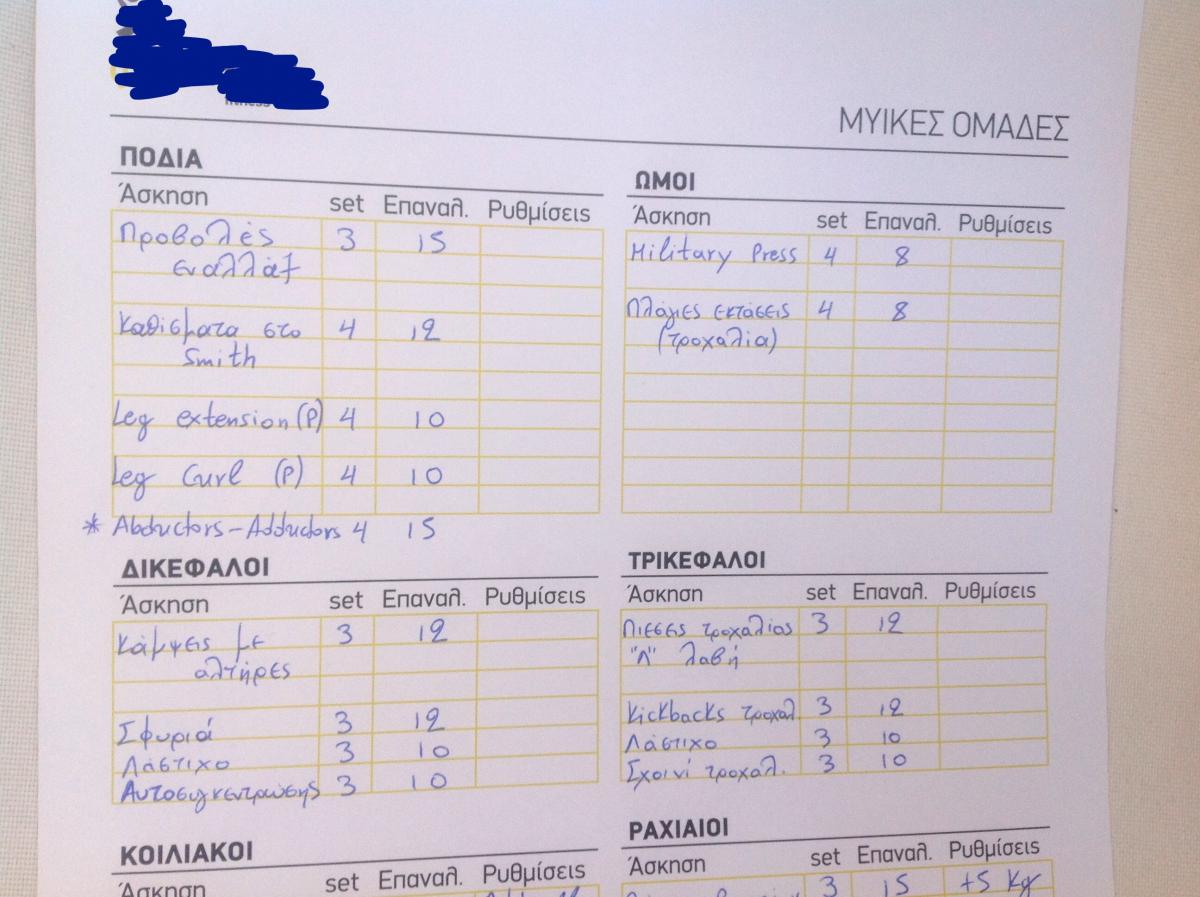 fitness
ΜΥΙΚΕΣ ΟΜΑΔΕΣ
ΠΟΔΙΑ
Άσκηση set Επαναλ. Ρυθμίσεις
Προβολές 3 15
εναλλάξ
Καθίσματα στο 4 12
Smith
Leg extension (P) 4 10
Leg Curl (P) 4 10
* Abductors - Adductors 4 15
ΩΜΟΙ
Άσκηση set Επαναλ. Ρυθμίσεις
Military Press 4 8
Πλάγιες εκτάσεις 4 8
(τροχαλία)
ΔΙΚΕΦΑΛΟΙ
Άσκηση set Επαναλ. Ρυθμίσεις
Κάμψεις με 3 12
αλτήρες
Σφυριά 3 12
Λάστιχο 3 10
Αυτοσυγκεντρώσης 3 10
ΤΡΙΚΕΦΑΛΟΙ
Άσκηση set Επαναλ. Ρυθμίσεις
Πιέσεις τροχαλίας 3 12
"Λ" λαβή
Kickbacks τροχαλ. 3 12
Λάστιχο 3 10
Σχοινί τροχαλ. 3 10
ΚΟΙΛΙΑΚΟΙ
Άσκηση set Επαναλ. Ρυθμίσεις
ΡΑΧΙΑΙΟΙ
Άσκηση set Επαναλ. Ρυθμίσεις
3 15 +5 Kg